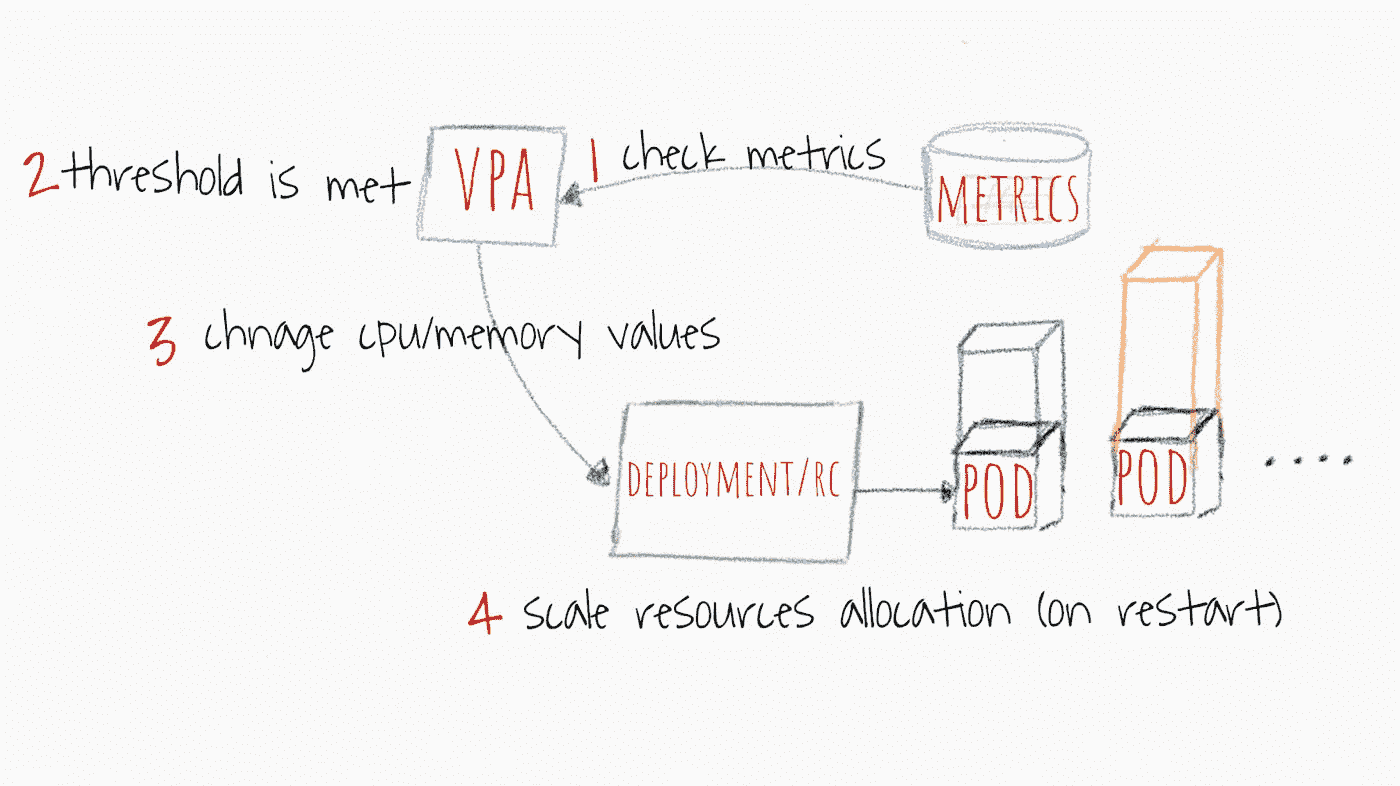 2 threshold is met
VPA
1 check metrics
METRICS
3 chnage cpu/memory values
DEPLOYMENT/RC
POD
POD
4 scale resources allocation (on restart)